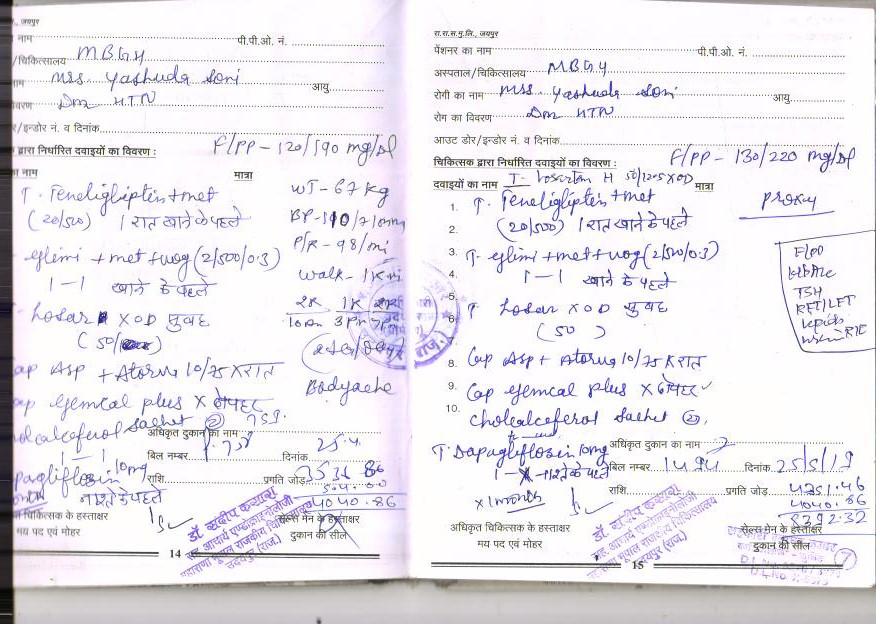 ., जयपुर
नाम पी.पी.ओ. नं.
/चिकित्सालय MBGH
नाम Mrs. Yashuda Soni आयु
विवरण Dm HTN
र/इन्डोर नं. व दिनांक
द्वारा निर्धारित दवाइयों का विवरण : F/PP - 120/190 mg/dl
का नाम मात्रा
T. Teneligliptin + met WT - 67 kg
(20/500) 1 रात खाने के पहले
P/R - 98/mi
glimi + met + vog (2/500/0.3) Walk - 1K
1 - 1 खाने के पहले
Losar X OD सुबह
(50
ap Asp + Atorva 10/75 X रात
Bodyache
ap Gemcal plus X दोपहर
olcalceferol Sachet
अधिकृत दुकान का नाम
1 - 1 बिल नम्बर 758 दिनांक 25.4
apagliflozin 10mg राशि प्रगति जोड़ 3531.86
नाश्ते के पहले
4040.86
चिकित्सक के हस्ताक्षर सेल्स मेन के हस्ताक्षर
मय पद एवं मोहर दुकान की सील
महाराणा भूपाल राजकीय चिकित्सालय
उदयपुर (राज.)
14
रा.रा.स.मु.लि., जयपुर
पेंशनर का नाम पी.पी.ओ. नं.
अस्पताल/चिकित्सालय MBGH
रोगी का नाम Mrs. Yashuda Soni आयु
रोग का विवरण Dm HTN
आउट डोर/इन्डोर नं. व दिनांक
चिकित्सक द्वारा निर्धारित दवाइयों का विवरण : F/PP - 130/220 mg/dl
T. Losartan H 50/12.5 X OD
दवाइयों का नाम मात्रा
1. T. Teneligliptin + met
2. (20/500) 1 रात खाने के पहले
3. T. glimi + met + vog (2/500/0.3)
4. 1 - 1 खाने के पहले
5.
6. T. Losar X OD सुबह
7. (50 )
8. Cap Asp + Atorva 10/75 X रात
9. Cap Gemcal plus X दोपहर
10. Cholcalceferol Sachet
TSH
RFT/LFT
Lipids
अधिकृत दुकान का नाम
T. Dapagliflozin 10mg
बिल नम्बर 1494 दिनांक 25/5/19
1 - X - नाश्ते के पहले
राशि प्रगति जोड़ 4351.46
X 1 month
4040.86
8392.32
अधिकृत चिकित्सक के हस्ताक्षर सेल्स मेन के हस्ताक्षर
मय पद एवं मोहर दुकान की सील
उदयपुर (राज.)
7
15